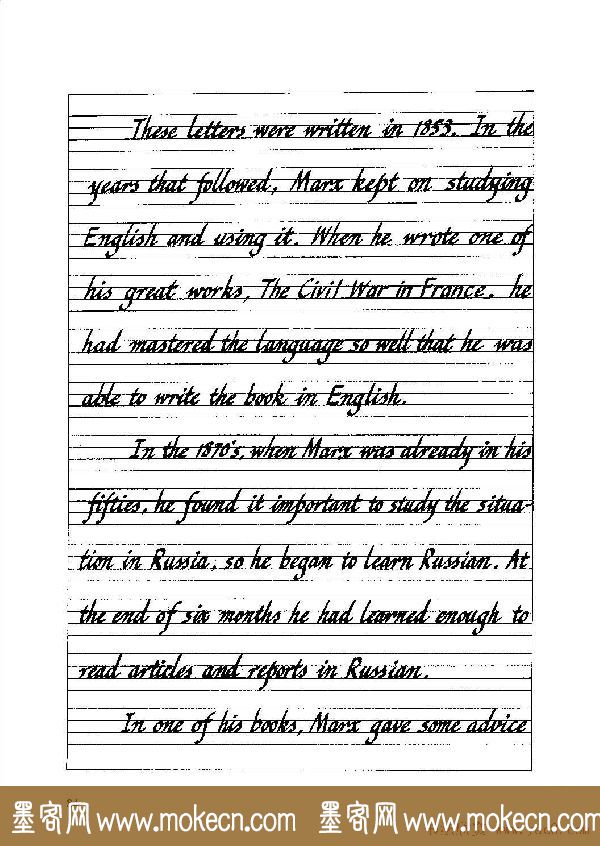 These letters were written in 1853. In the
years that followed, Marx kept on studying
English and using it. When he wrote one of
his great works, The Civil War in France. he
had mastered the language so well that he was
able to write the book in English.
In the 1870's, when Marx was already in his
fifties, he found it important to study the situa-
tion in Russia, so he began to learn Russian. At
the end of six months he had learned enough to
read articles and reports in Russian.
In one of his books, Marx gave some advice
墨客网 www.mokecn.com 墨客网 www.mokecn.com